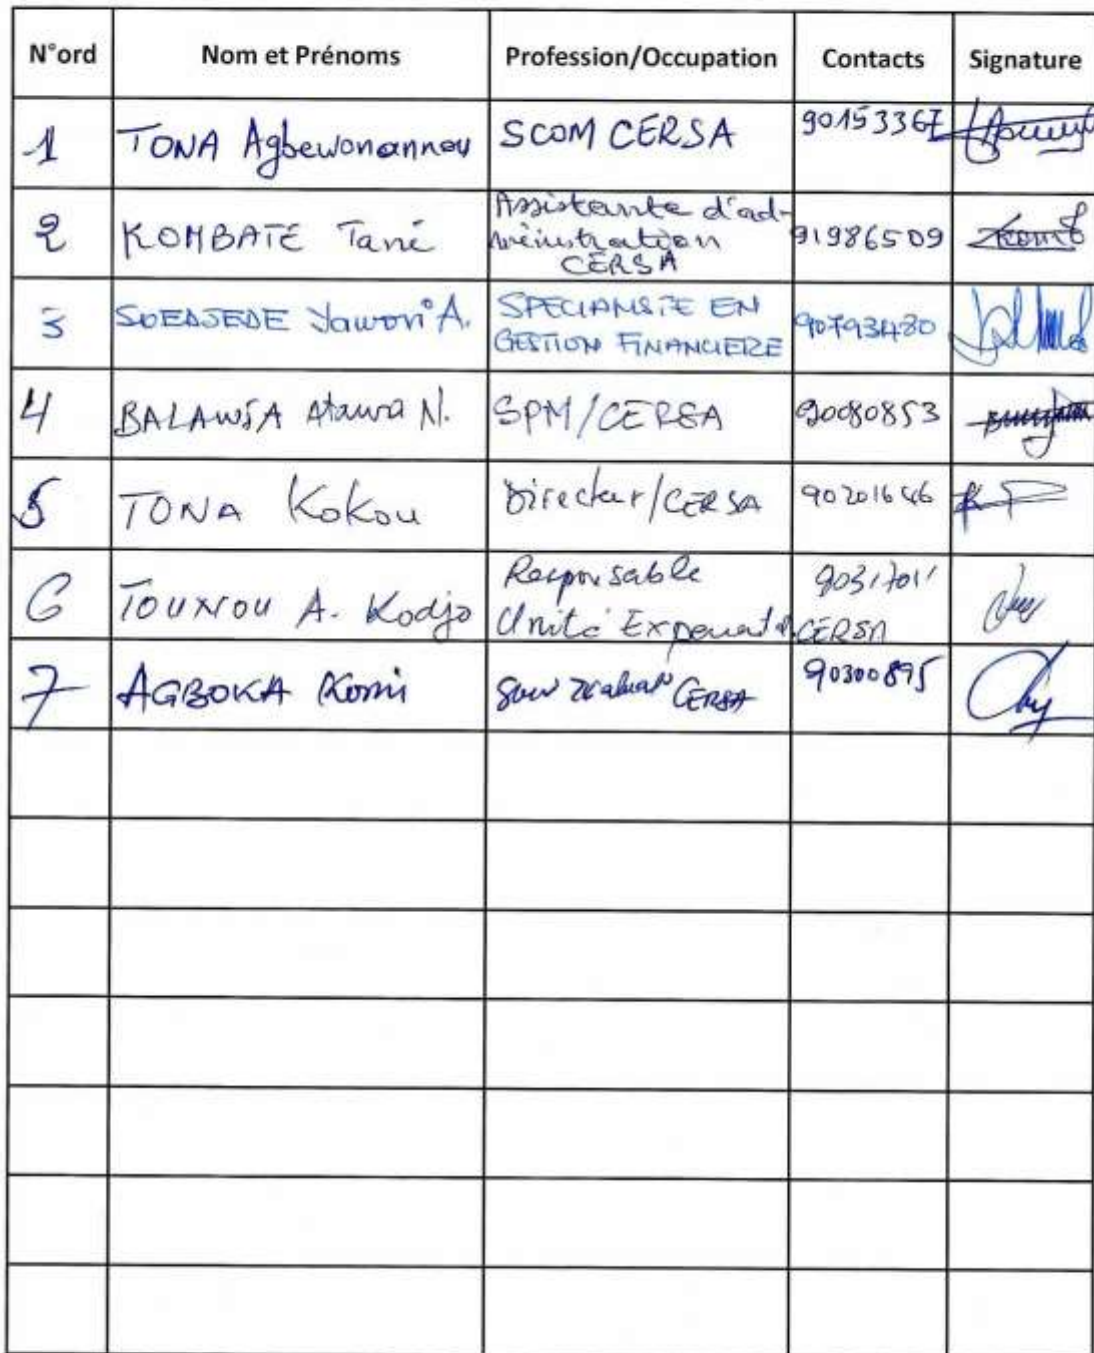 N°ord Nom et Prénoms Profession/Occupation Contacts Signature
1 TONA Agbewonannou SCOM CERSA 90153367
2 KOMBATE Tani Assistante d'ad-
ministration
CERSA 91986509
3 SOEDJEDE Yawovi A. SPECIALISTE EN
GESTION FINANCIERE 90793480
4 BALAWIA Atawa N. SPM/CERSA 90080853
5 TONA Kokou Directeur/CERSA 90201646
6 TOUNOU A. Kodjo Responsable 90317011
Unité CERSA
7 AGBOKA Komi CERSA 90300895